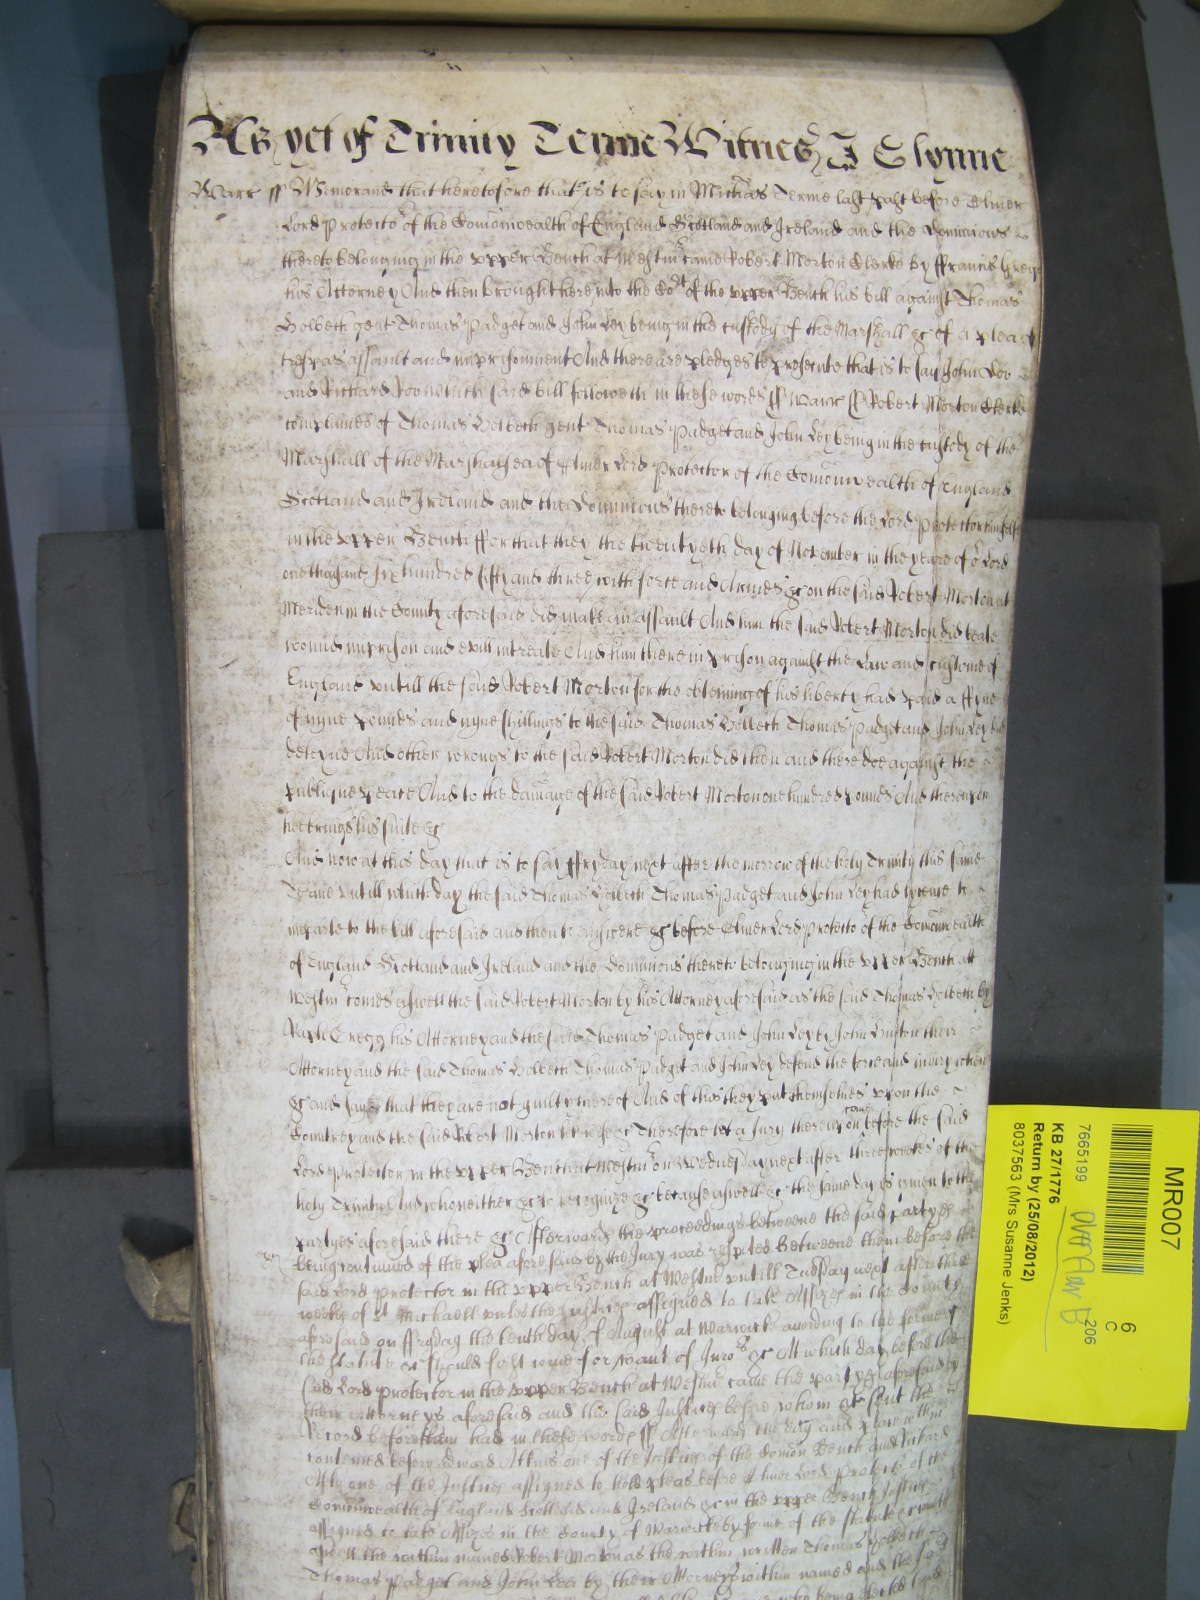 As yet of Trinity Terme Witnes J Glynne
Warr ss Memorand that heretofore that is to say in Michas Terme last past before Oliver
Lord Protector of the Comonwealth of England Scotland and Ireland and the Dominions
thereto belonging in the upper Bench at Westmr came Robert Morton Clerke by ffrancis Gregg
his Attorney And then brought here into the Cort of the upper Bench his bill against Thomas
Holbech gent Thomas Padget and John Ley being in the custody of the Marshall &c of a plea of
trespas assault and imprisonment And there are pledges to prosecute that is to say John Doo
and Richard Roo which said bill followeth in these words ss Warr ss Robert Morton Clerke
complaines of Thomas Holbech gent Thomas Padget and John Ley being in the custody of the
Marshall of the Marshalsea of Oliver Lord Protector of the Comonwealth of England
Scotland and Ireland and the Dominions thereto belonging before the Lord Protector himselfe
in the upper Bench ffor that they the twentyeth day of November in the yeare of or Lord
one thousand six hundred fifty and three with force and Armes &c on the said Robert Morton at
Meriden in the County aforesaid did make an assault And him the said Robert Morton did beate
wound imprison and evill intreate And him there in prison against the Law and custome of
England untill the said Robert Morton for the obteining of his liberty had paid a ffyne
of nyne pounds and nyne shillings to the said Thomas Holbech Thomas Padget and John Ley did
deteyne And other wrongs to the said Robert Morton did then and there doe against the
publique peace And to the damage of the said Robert Morton one hundred pounds And thereupon
hee brings his suite &c
And now at this day that is to say ffryday next after the morrow of the holy Trinity this same
Terme untill which day the said Thomas Holbech Thomas Padget and John Ley had lycence to
imparle to the bill aforesaid and then to answere &c before Oliver Lord Protector of the Comonwealth
of England Scotland and Ireland and the Dominions thereto belonging in the upper Bench att
Westmr comes aswell the said Robert Morton by his Attorney aforesaid as the said Thomas Holbech by
Gregg his Attorney and the said Thomas Padget and John Ley by John their
Attorney and the said Thomas Holbech Thomas Padget and John Ley defend the force and iniury when
&c and sayes that they are not guilty thereof And of this they put themselves upon the
Countrey and the said Robert Morton likewise &c Therefore let a Jury thereupon come before the said
Lord Protector in the upper Bench at Westmr on Wednesday next after three weekes of the
holy Trinity And who neither &c to recognize &c because aswell &c the same day is given to the
partyes aforesaid there &c Afterwards the proceedings betweene the said partyes
being continued of the plea aforesaid by the Jury was respited betweene them before the
said Lord Protector in the upper Bench at Westmr untill Tuesday next after three
weekes of St Michaell unles the Justices assigned to take Assizes in the County
aforesaid on ffryday the tenth day of August at Warwicke according to the forme of
the statute &c should first come for want of Jurors &c At which day before the
said Lord Protector in the upper Bench at Westmr came the partyes aforesaid by
their Attorneys aforesaid and the said Justices before whom &c sent the
Record before them had in these words ss Afterwards the day and place within
conteined before Edward Atkins one of the Justices of the Comon Bench and Richard
one of the Justices assigned to hold pleas before Oliver Lord Protector of the
Comonwealth of England Scotland and Ireland &c in the upper Bench Justices
assigned to take Assizes in the County of Warwicke by forme of the statute &c come
aswell the within named Robert Morton as the within written Thomas Holbech
Thomas Padget and John Lea by their Attorneys within named and the Jurors
MR007
6
C
206
7665199
KB 27/1776
Return by (25/08/2012)
8037563 (Mrs Susanne Jenks)